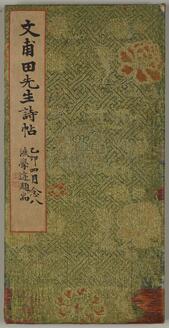 文甫田先生詩帖
乙卯四月念八